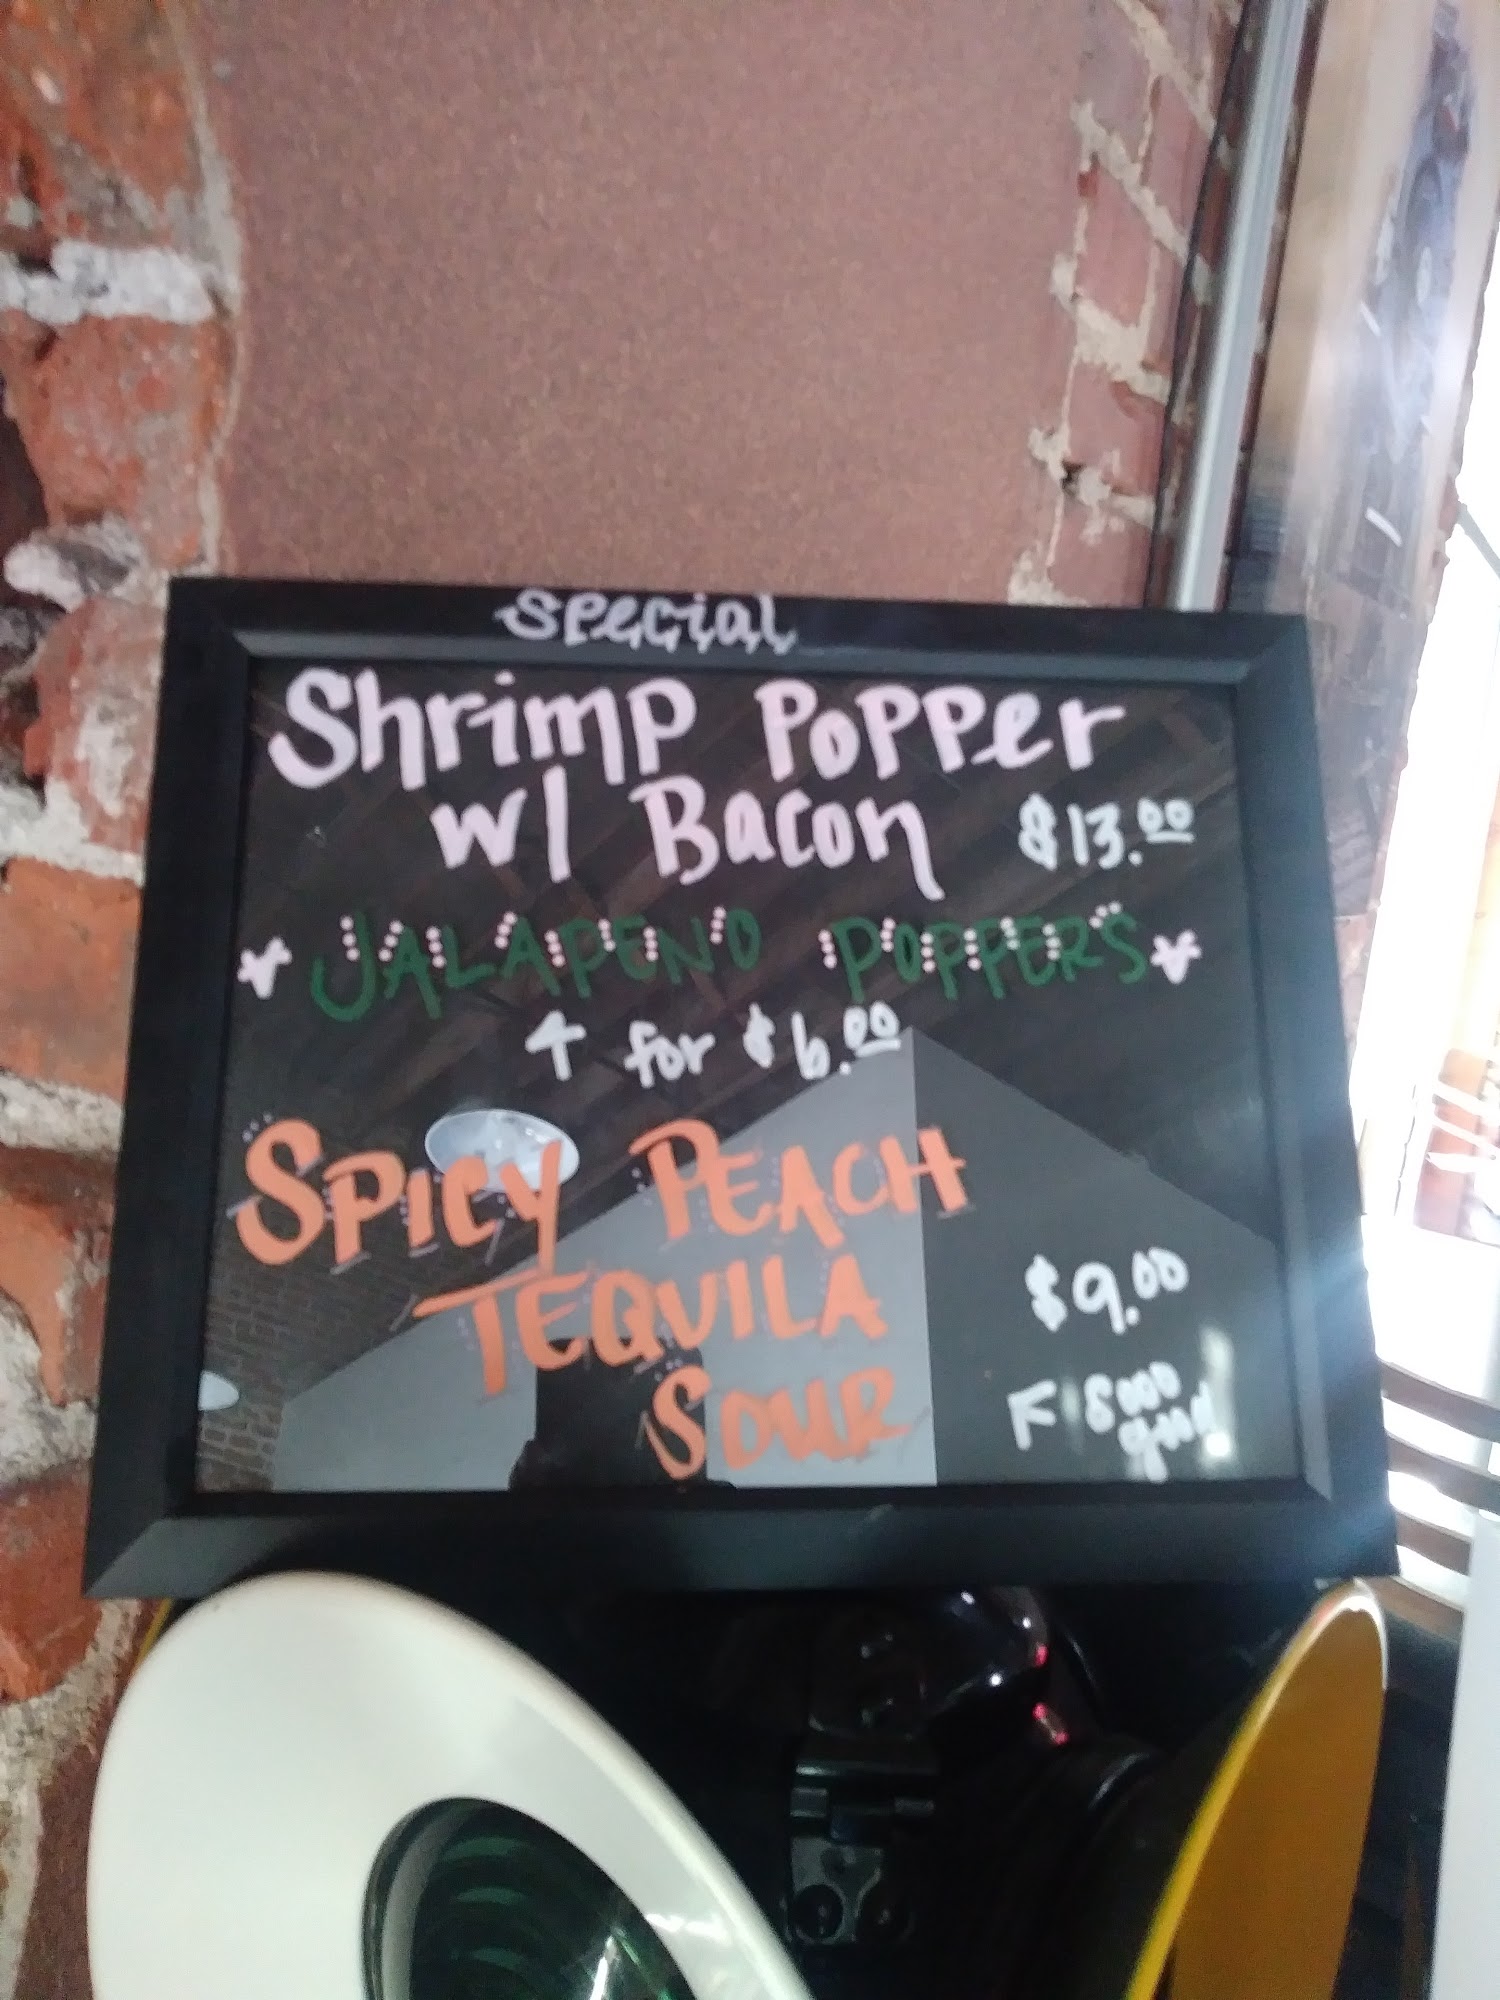 Special
Shrimp Popper
w/ Bacon $13.00
JALAPENO POPPERS
4 for $6.00
SPICY PEACH
TEQUILA
SOUR
$9.00
sooo
good